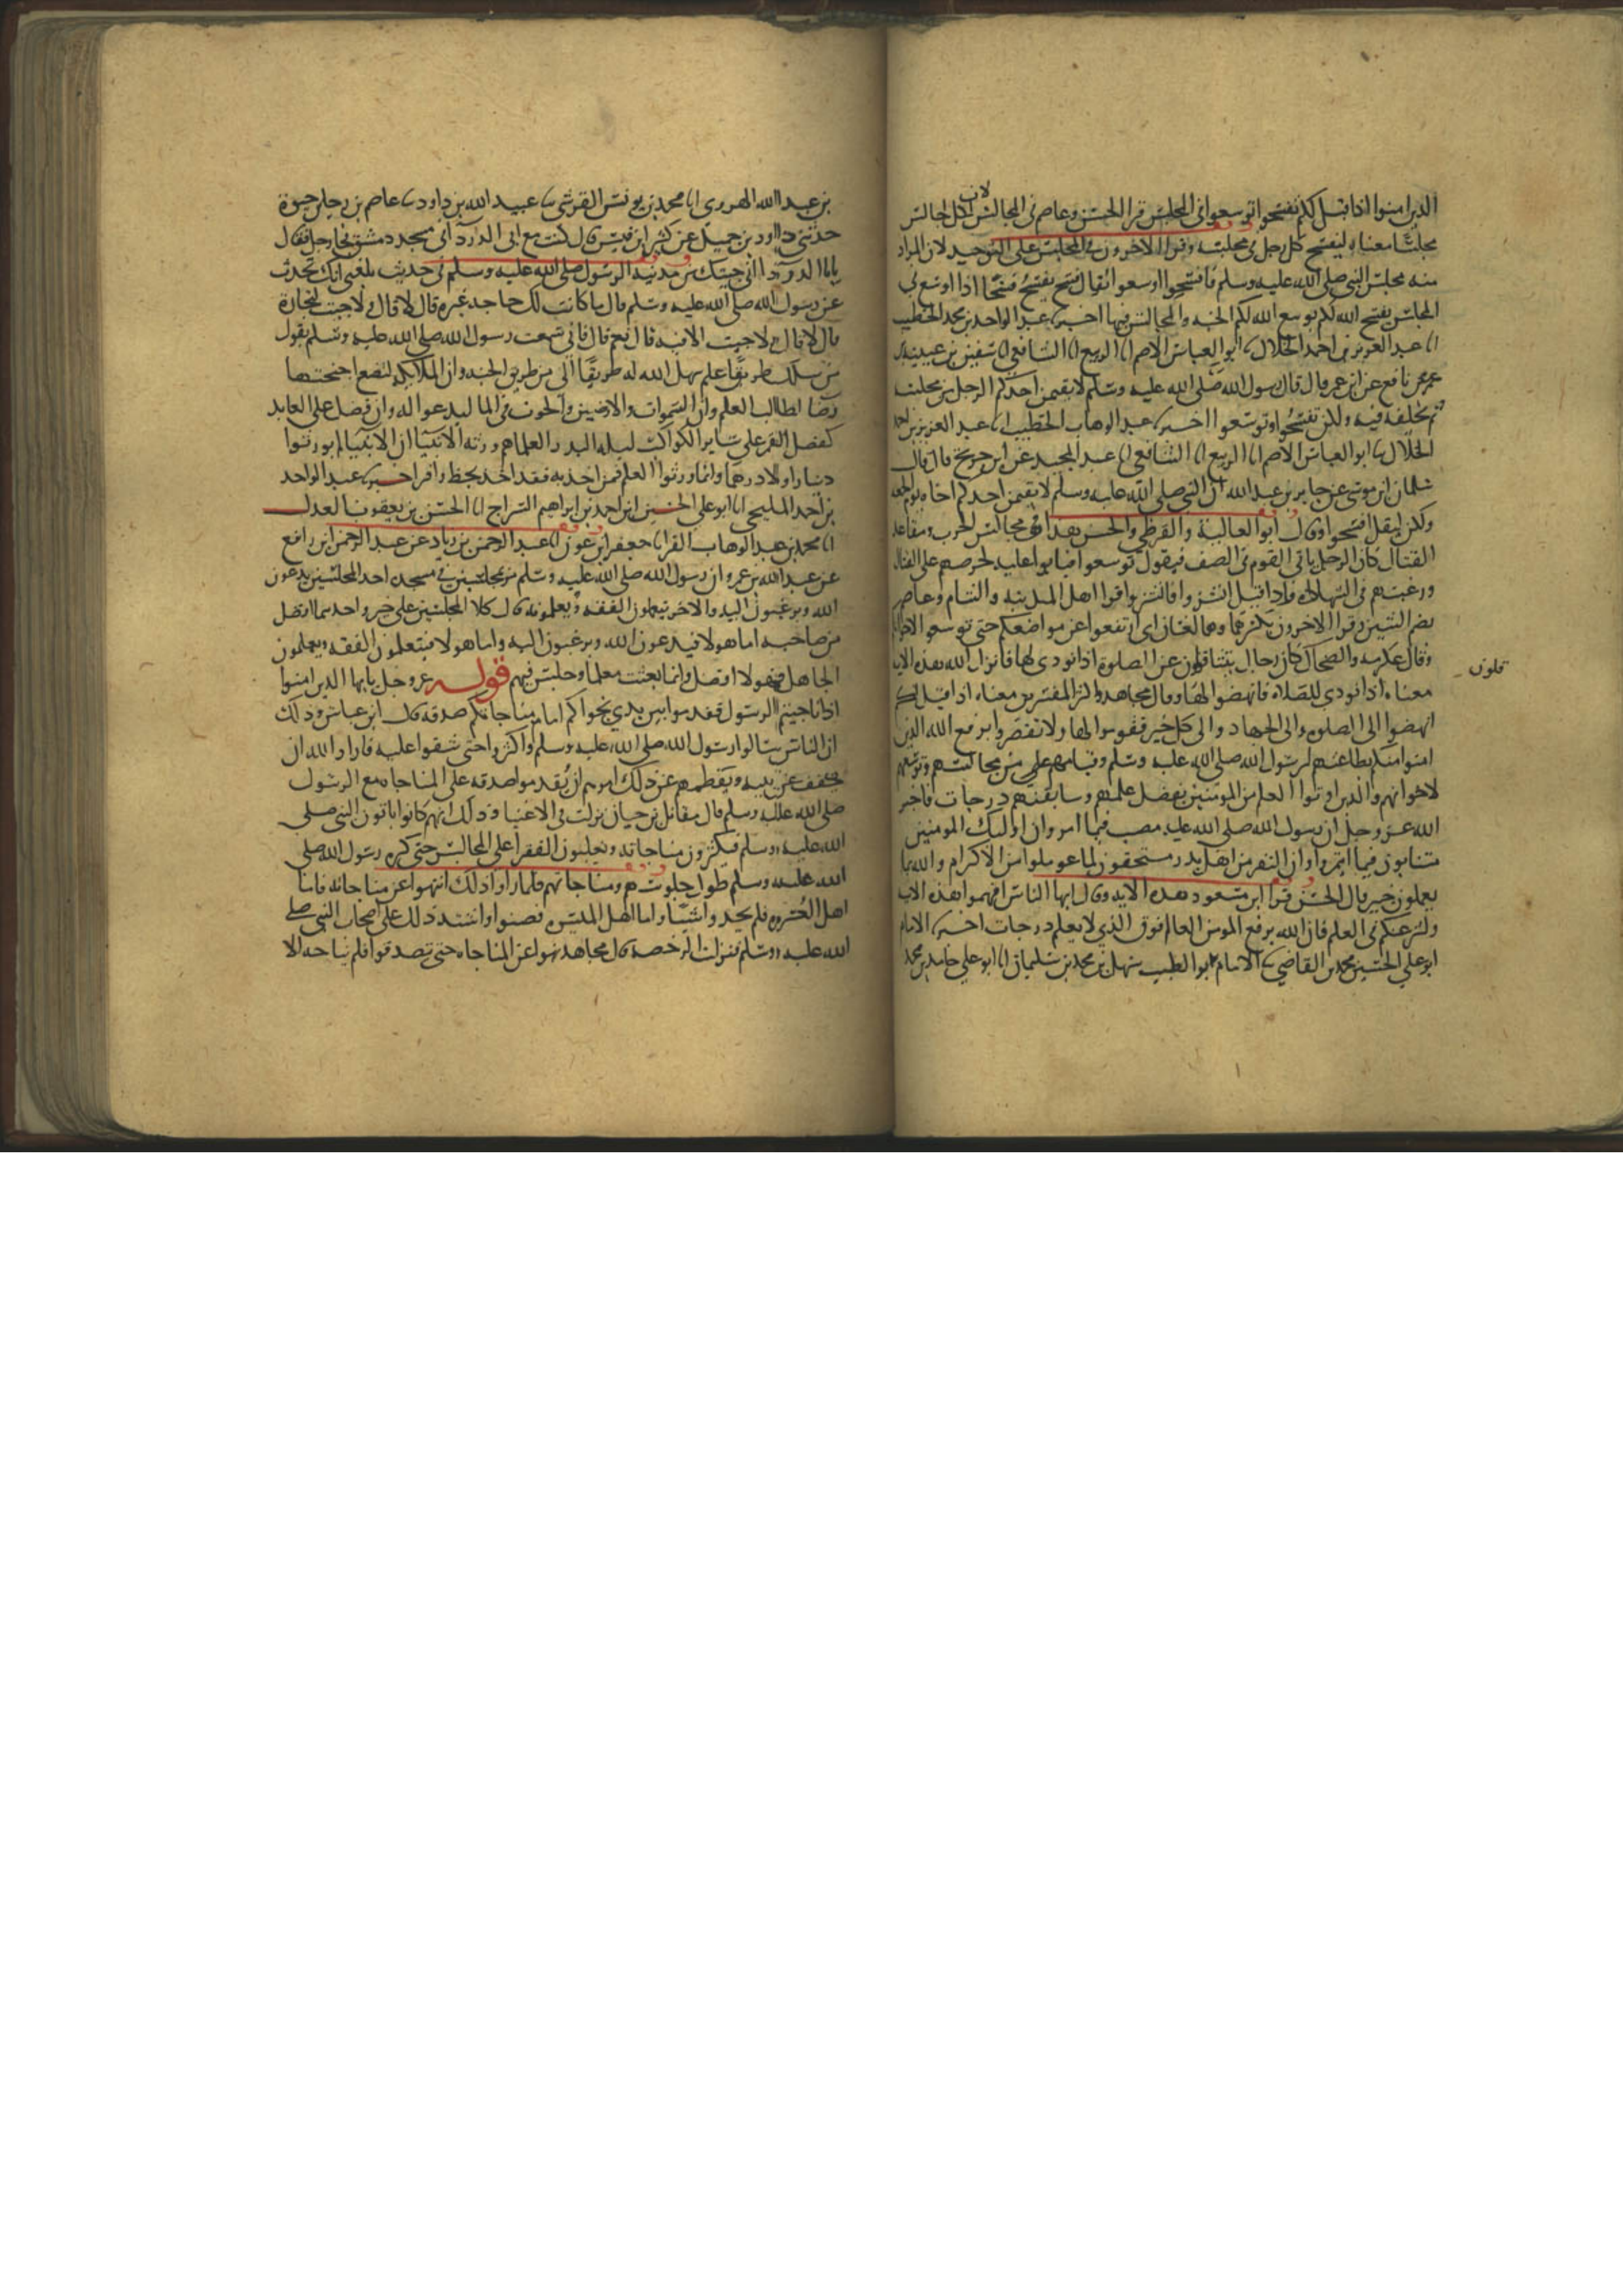 الذين امنوا اذا قيل لكم تفسحوا توسعوا في المجلس قرا الحسن وعاصم في المجالس لان لكل جالس
مجلسا معناه ليفسح كل رجل في مجلسه وقرا الاخرون في المجلس على التوحيد لان المراد
منه مجلس النبي صلى الله عليه وسلم فافسحوا اوسعوا يقال فسح يفسح فسحا اذا اوسع في
المجلس يفسح الله لكم يوسع الله لكم الجنه والمجالس فيها اخبرنا عبد الواحد بن محمد الخطيب
انا عبد العزيز بن احمد الخلال ثنا ابو العباس الاصم انا الربيع انا الشافعي انا سفين بن عيينه
عن نافع عن ابن عمر قال قال رسول الله صلى الله عليه وسلم لا يقيمن احدكم الرجل من مجلسه
ثم يخلفه فيه ولكن تفسحوا وتوسعوا اخبرنا عبد الوهاب الخطيب انا عبد العزيز بن احمد
الخلال ثنا ابو العباس الاصم انا الربيع انا الشافعي انا عبد المجيد عن ابن جريج قال قال
سلمان ابن موسى عن جابر بن عبد الله ان النبي صلى الله عليه وسلم لا يقيمن احدكم اخاه يوم الجمعه
ولكن ليقل افسحوا وقال ابو العالية والقرظي والحسن هذا في مجالس الحرب ومقاعد
القتال كان الرجل ياتي القوم في الصف فيقول توسعوا فيابوا عليه لحرصهم على القتال
ورغبتهم في الشهادة واذا قيل انشزوا فانشزوا قرا اهل المدينه والشام وعاصم
بضم الشين وقرا الاخرون بكسرهما وهما لغتان اي ارتفعوا عن مواضعكم حتى توسعوا لاخوانكم
وقال عكرمه والضحاك كان رجال يتثاقلون عن الصلوة اذا نودي لها فانزل الله هذه الايه
ثاقلون
معناه اذا نودي للصلاه فانهضوا لها وقال مجاهد واكثر المفسرين معناه اذا قيل لكم
انهضوا الى الصلوه والى الجهاد والى كل خير فقوموا لها ولا تقصروا يرفع الله الذين
امنوا منكم بطاعتهم لرسول الله صلى الله عليه وسلم وقيامهم من مجالسهم وتوسعهم
لاخوانهم والذين اوتوا العلم من المومنين بفضل علمهم وسابقتهم درجات فاخبر
الله عز وجل ان رسول الله صلى الله عليه مصيب فيما امر وان اوليك المومنين
مثابون فيما ايتمروا وان النفر من اهل بدر مستحقون لما عوملوا من الاكرام والله بما
يعملون خبير قال الحسن قرا ابن مسعود هذه الايه وقال ايها الناس افهموا هذه الايه
ولترغبكم في العلم فان الله يرفع المومن العالم فوق الذي لا يعلم درجات اخبرنا الامام
ابو علي الحسين محمد بن القاضي ثنا الامام ابو الطيب سهل بن محمد بن سليمان انا ابو علي حامد بن محمد
بن عبد الله الهروي انا محمد بن يونس القرشي ثنا عبيد الله بن داود ثنا عاصم بن رجا بن حيوة
حدثني داود بن جميل عن كثير ابن قيس قال كنت مع ابي الدرداء في مسجد دمشق فجا رجل فقال
يابا الدرداء اني جيتك من مدينة الرسول صلى الله عليه وسلم في حديث بلغني انك تحدث
عن رسول الله صلى الله عليه وسلم قال ما كانت لك حاجه غيره قال لا قال ولا جيت لتجارة
قال لا قال ولا جيت الا فيه قال نعم قال فاني سمعت رسول الله صلى الله عليه وسلم يقول
من سلك طريقا علم سهل الله له طريقا الى من طريق الجنه وان الملايكه لتضع اجنحتها
رضا لطالب العلم وان السموات والارضين والحوت في الما ليدعوا له وان فضل على العابد
كفضل القمر على ساير الكواكب ليله البدر العلما هم ورثه الانبيا ان الانبيا لم يورثوا
دينارا ولا درهما وانما ورثوا العلم فمن اخذ به فقد اخذ بحظ وافر اخبرنا عبد الواحد
بن احمد المليحي انا ابو علي الحسين ابن احمد بن ابراهيم السراج انا الحسن بن يعقوب العدل
انا محمد بن عبد الوهاب الفرا ثنا جعفر ابن عون انا عبد الرحمن بن زياد عن عبد الرحمن ابن رافع
عن عبد الله بن عمرو ان رسول الله صلى الله عليه وسلم مر بمجلسين في مسجده احد المجلسين يدعون
الله ويرغبون اليه والاخر يتعلمون الفقه ويعلمونه قال كلا المجلسين على خير واحدهما افضل
من صاحبه اما هولا فيدعون الله ويرغبون اليه واما هولا فيتعلمون الفقه ويعلمون
الجاهل فهولا افضل وانما بعثت معلما وجلس فيهم قوله عز وجل يايها الذين امنوا
اذا ناجيتم الرسول فقدموا بين يدي نجواكم امام مناجاتكم صدقه قال ابن عباس وذلك
ان الناس سالوا رسول الله صلى الله عليه وسلم واكثروا حتى شقوا عليه فاراد الله ان
يخفف عن نبيه ويفطمهم عن ذلك امرهم ان يقدموا صدقه على المناجاه مع الرسول
صلى الله عليه وسلم قال مقاتل بن حيان نزلت في الاغنيا وذلك انهم كانوا ياتون النبي صلى
الله عليه وسلم فيكثرون مناجاته ويغلبون الفقرا على المجالس حتى كره رسول الله صلى
الله عليه وسلم طول جلوسهم ومناجاتهم فلما راوا ذلك انتهوا عن مناجاته فاما
اهل العسره فلم يجدوا شيا واما اهل الميسره فضنوا واشتد ذلك على اصحاب النبي صلى
الله عليه وسلم فنزلت الرخصه قال مجاهد نهوا عن المناجاه حتى يتصدقوا فلم يناجه الا